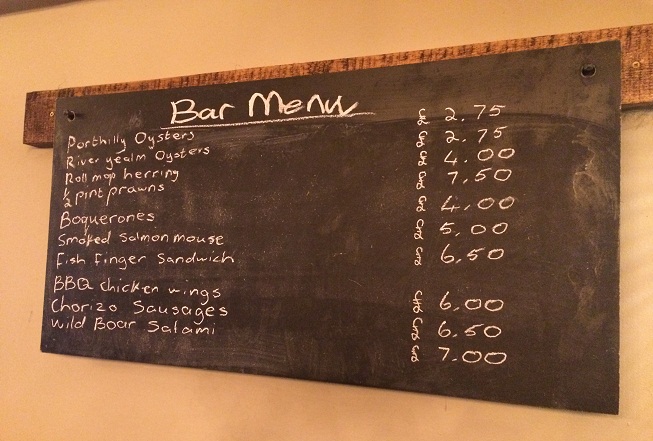 Bar Menu
Porthilly Oysters £ 2.75
River yealm Oysters £ 2.75
Roll mop herring £ 4.00
½ pint prawns £ 7.50
Boquerones £ 4.00
Smoked Salmon mouse £ 5.00
Fish finger Sandwich £ 6.50
BBQ chicken wings £ 6.00
Chorizo Sausages £ 6.50
Wild Boar Salami £ 7.00